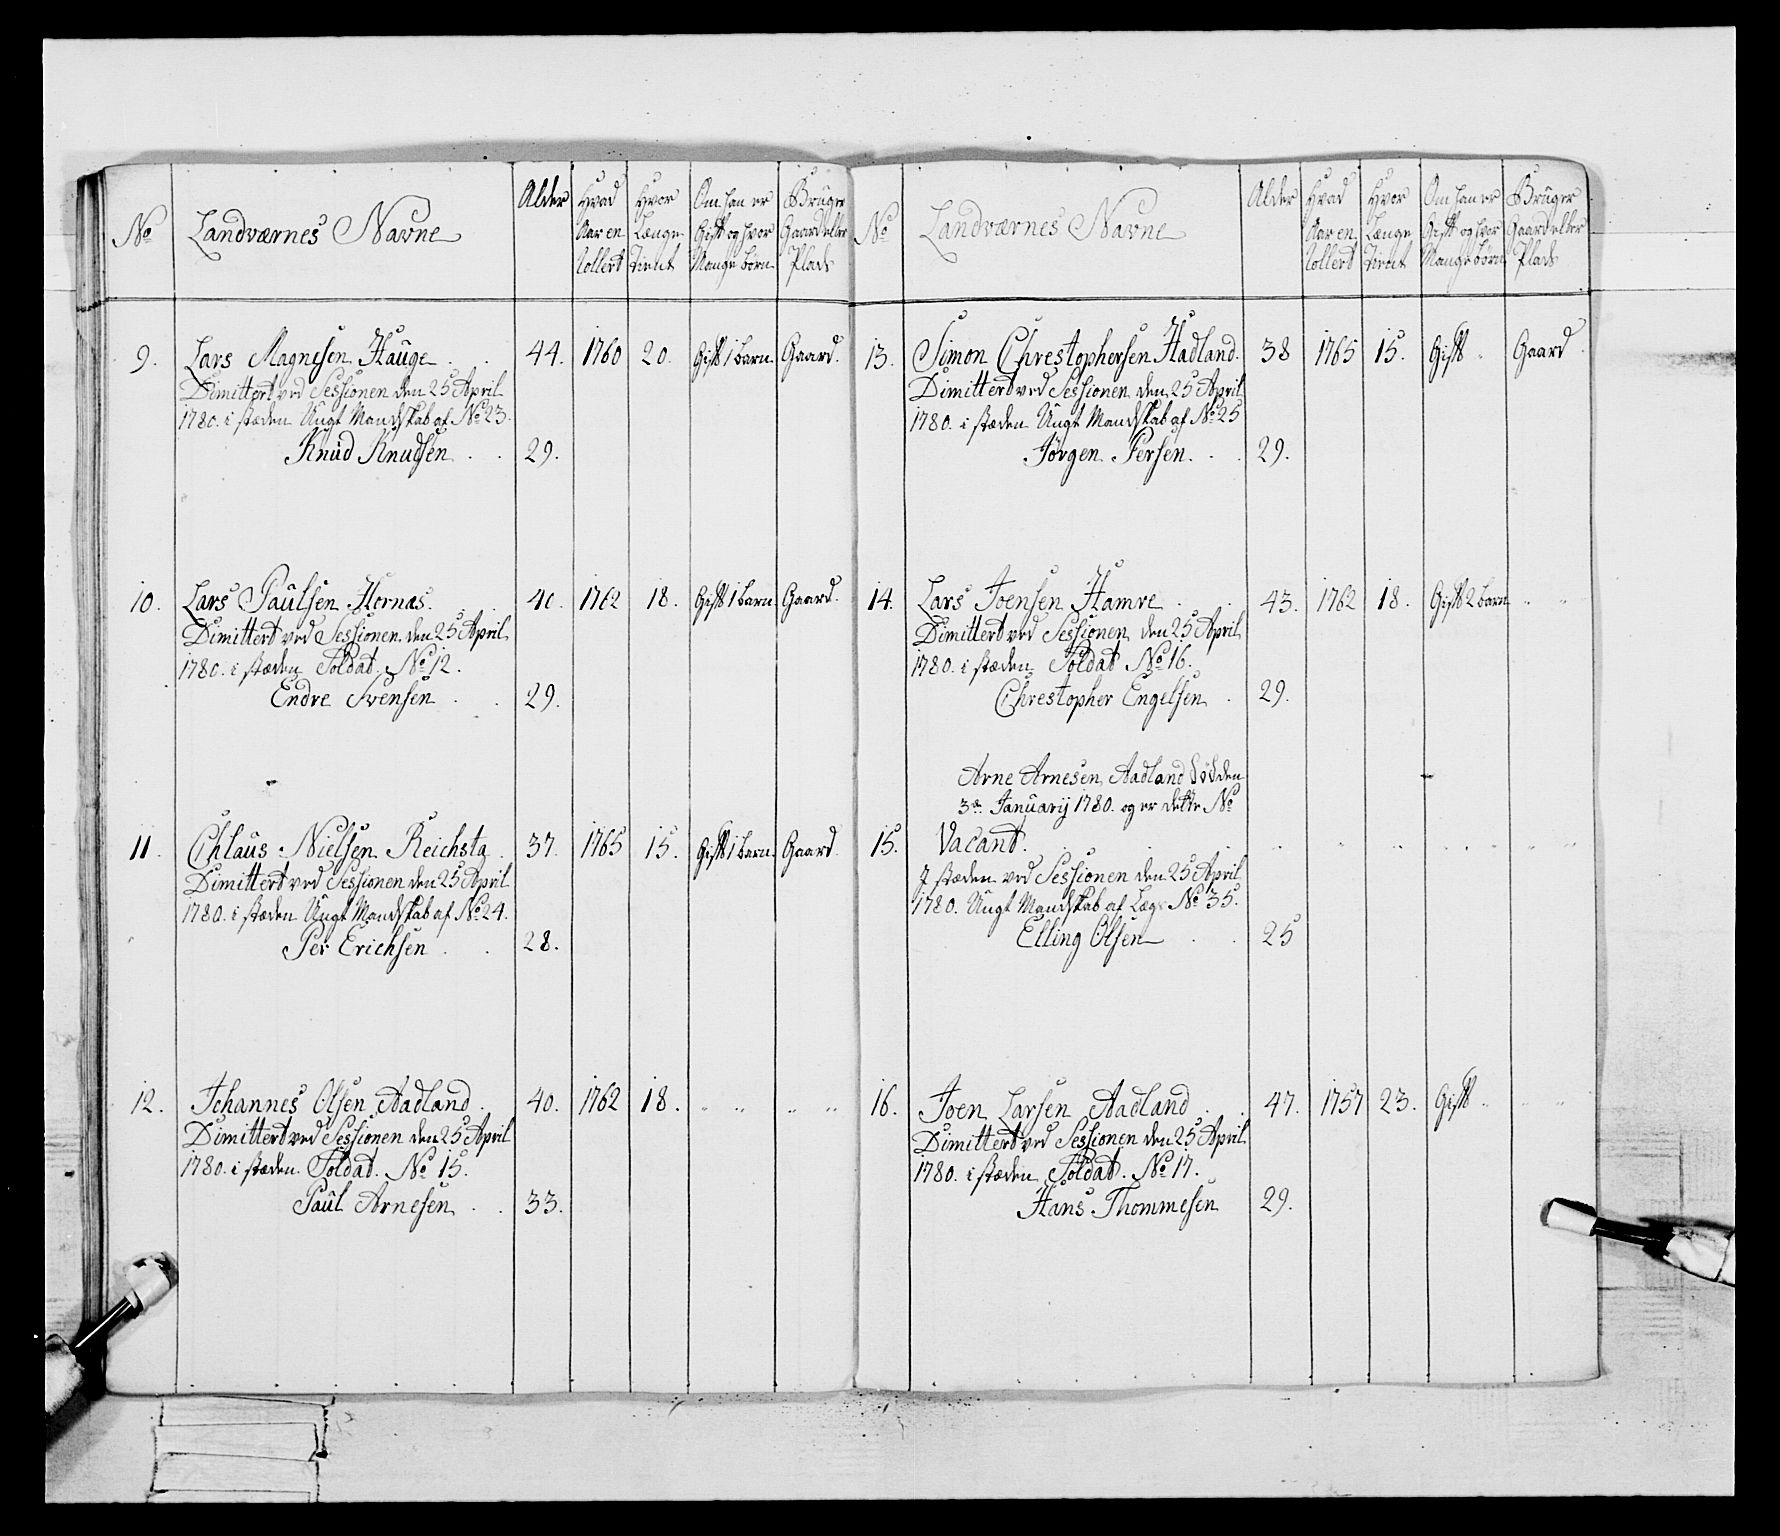 No
Landværnes Navne
Alder
Hvad Aar en Rollert
Hvor Længe Tient
Om han er Gift og hvor Mange børn
Bruger Gaard eller Plads
9. Lars Magnesen Hauge 44. 1760 20. Gift 1 barn. Gaard.
Dimittert ved Sessionen den 25 April
1780. i stæden Ungt Mandskab af No 23.
Knud Knudsen 29.
10. Lars Paulsen Hornæs. 40. 1762 18. Gift 1 barn. Gaard.
Dimittert ved Sessionen den 25 April
1780. i stæden Soldat No 12.
Endre Svensen 29.
11. Chlaus Nielsen Reichsta 37. 1765 15. Gift 1 barn. Gaard
Dimittert ved Sessionen den 25 April
1780. i stæden Ungt Mandskab af No 24.
Per Erichsen 28.
12. Johannes Olsen Aadland 40. 1762 18. " " " "
Dimittert ved Sessionen den 25 April
1780. i stæden Soldat. No 15.
Paul Arnesen 33.
No
Landværnes Navne
Alder
Hvad Aar en Rollert
Hvor Længe Tient
Om han er Gift og hvor Mange børn
Bruger Gaard eller Plads
13. Simon Chrestophersen Hadland. 38 1765 15. Gift Gaard
Dimittert ved Sessionen den 25 April
1780. i stæden Ungt Mandskab af No 25
Jørgen Persen. 29.
14. Lars Joensen Hamre 43. 1762 18. Gift 2 barn " "
Dimittert ved Sessionen den 25 April
1780. i stæden Soldat No 16.
Chrestopher Engelsen 29.
Arne Arnesen Aadland død den
3de Januarij 1780. og er dette No
15. Vacant.
J stæden ved Sessionen den 25 April
1780. Ungt Mandskab af Læg No 35.
Elling Olsen 25
16. Joen Larsen Aadland 47. 1757 23. Gift " " "
Dimittert ved Sessionen den 25 April
1780. i stæden Soldat. No 17.
Hans Thommesen 29.